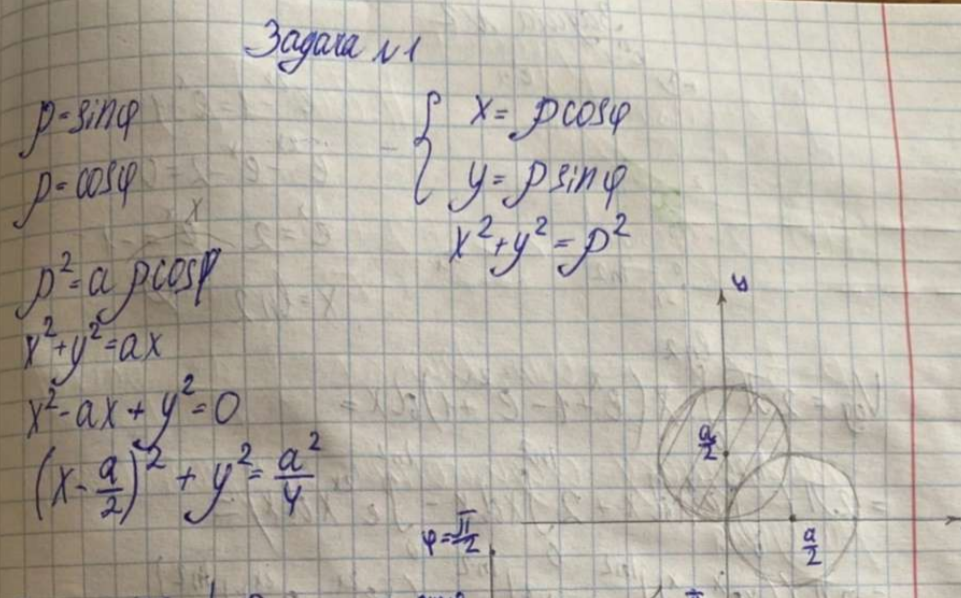 Задача №1
ρ=sinφ
ρ=cosφ
{ x = ρcosφ
y = ρsinφ
x²+y²=ρ²
ρ²=a ρcosφ
x²+y²=ax
x²-ax+y²=0
(x-a/2)²+y²=a²/4
y
a/2
a/2
φ=π/2